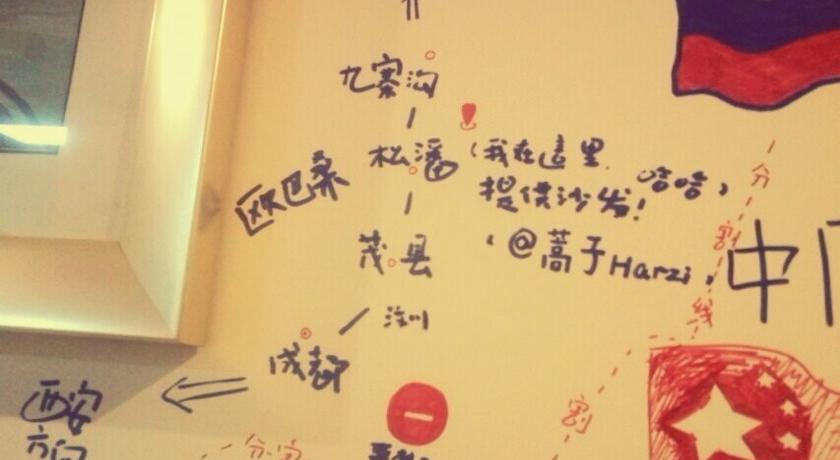 九寨沟
松潘
(我在這里.哈哈,
提供沙发!
欧巴桑
茂县
@蒿子Harzi,
汶川
成都
西安
方向
分
割
线
中
割